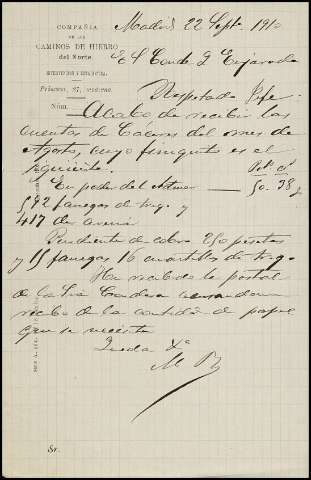 COMPAÑÍA
DE LOS
CAMINOS DE HIERRO
del Norte
Madrid 22 Sept. 1910
El Conde D
Respetado Jefe
Núm.
Acabo de recibir las
cuentas de Cáceres del mes de
Agosto, cuyo finiquito es el
siguiente.
En poder del Admor 50. 38
592 fanegas de trigo y
417 de avena
Pendiente de cobro 250 pesetas
y 15 fanegas 16 cuartillos de trigo
He recibido la postal
de la Sra Condesa
recibo de la cantidad de papel
que se necesita
Queda
M
Sr.